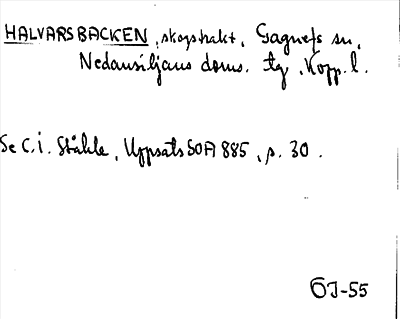 HALVARSBACKEN, skogstrakt, Gagnefs sn,
Nedansiljans doms. tg, Kopp. l.
Se C.I. Ståhle, Uppsats SOA 885, p. 30.
ÖJ-55